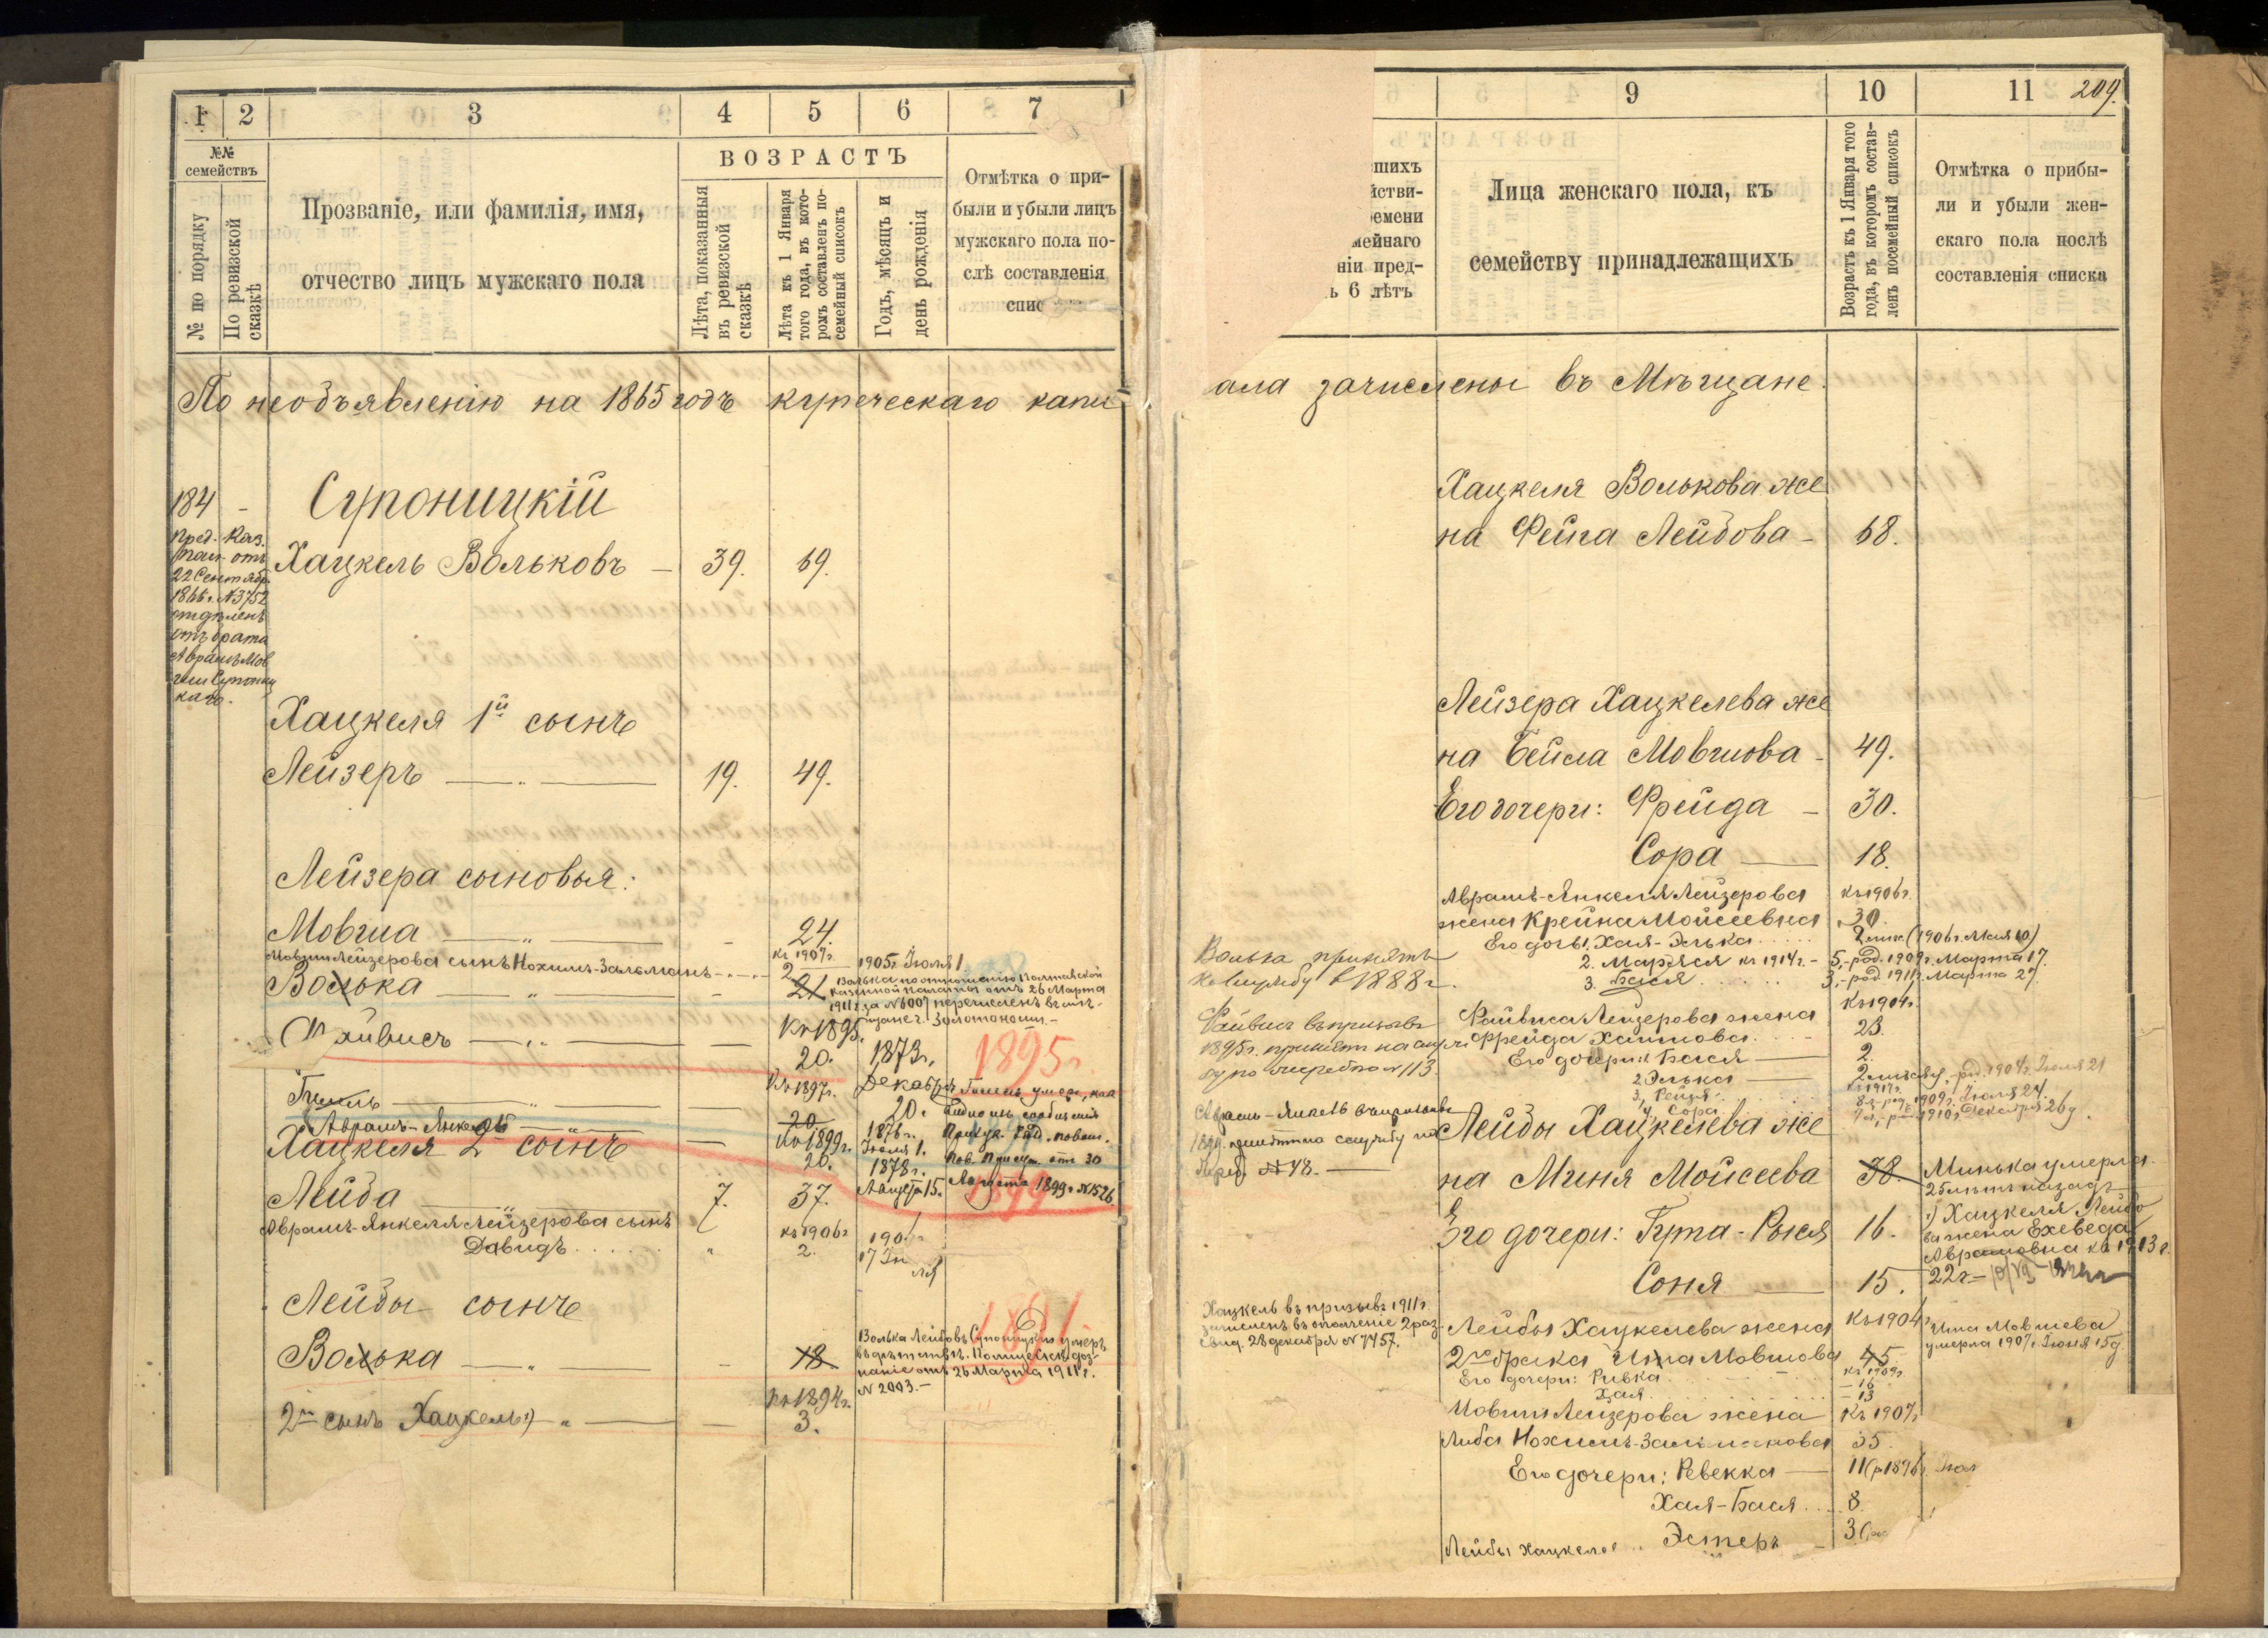 1 2 3 4 5 6 7
№№ семействъ
№ по порядку
По ревизской сказкѣ
Прозваніе, или фамилія, имя,
отчество лицъ мужскаго пола
ВОЗРАСТЪ
Лѣта, показанныя въ ревизской сказкѣ
Лѣта къ 1 Января того года, въ которомъ составленъ посемейный списокъ
Годъ, мѣсяцъ и день рожденія
Отмѣтка о при-
были и убыли лицъ
мужскаго пола по-
слѣ составленія
спис
По необъявленію на 1865 годъ купеческаго капи
184 - Супоницкій
Пред. Каз.
Пал. отъ
22 Сентября
1866 г. N 3752
отдѣленъ
отъ брата
Хацкель Вольковъ — 39. 69.
Хацкеля 1й сынъ
Лейзеръ — „ — 19. 49.
Лейзера сыновья:
Мовша — „ — - 24.
къ 1907г.
Мовши Лейзерова сынъ Нохимъ-Зальманъ - 2 1905 г. Іюля 1
Волька — „ — - 21
Волька по отношенію Полтавской
казенной палаты отъ 26 Марта
1911 г. за N 6007 перечисленъ въ мѣ-
щане г. Золотоноши. —
Файвисъ — „ — — Къ 1895.
20. 1873 г. 1895 г
Къ 1897г. Декабря
20.
— „ — — 20 1876 г.
Іюля 1.
Аврамъ-Янкель — „ — Къ 1899г.
20. 1878 г.
Августа 15. 1899
Отъ 30
Августа 1899 г N 1526
Хацкеля 2й сынъ
Лейба — „ — 7. 37.
Аврамъ-Янкеля Лейзерова сынъ къ 1906г
Давидъ . . . . „ 2.
Лейбы сынъ
Волька — „ — - 18
Волька Лейбовъ Супоницкій умеръ
въ дѣтствѣ. Полицейск. доз-
наніе отъ 26 Марта 1911 г.
N 2003. —
1891
Къ 1894г.
2й сынъ Хацкель — „ — — 3.
9 10 11 209.
вшихъ
йстви-
ремени
мейнаго
ніи пред-
ь 6 лѣтъ
Лица женскаго пола, къ
семейству принадлежащихъ
Возрастъ къ 1 Января того года, въ которомъ составленъ посемейный списокъ
Отмѣтка о прибы-
ли и убыли жен-
скаго пола послѣ
составленія списка
ала зачислены въ Мѣщане.
Хацкеля Волькова же
на Фейга Лейбова - 68.
Лейзера Хацкелева же
на Бейла Мовшова - 49.
Его дочери: Фрейда - 30.
Сора — 18.
Аврамъ-Янкеля Лейзерова къ 1906г.
жена Крейна Мойсеевна 30.
Его дочь 1. Хая-Элька . . . . 2 мѣс. (1906 г. Мая 10)
2. Маряся къ 1914 г. - 5, - род. 1909 г. Марта 17.
3. Бася . . . . 3, - род. 1911 г. Марта 27.
Волька принятъ
на службу в 1888 г.
Файвисъ въ призывѣ
1895 г. принятъ на служ
Файвиса Лейзерова жена Къ 1904г.
Фрейда Хаимова . . . - 23.
Его дочери: 1 Бася — 2.
2 Элька — род. 1904 г. Іюля 21
3, Рейзя . . . 1909 г. Іюля 24.
4, Сора . . . 1910, Декабря 26 д.
Аврамъ-Янкель въ призывѣ
1899 г.
N 48. —
Лейбы Хацкелева же
на Миня Мойсеева 38. Минька умерла
25 лѣтъ назадъ
Его дочери: Гута-Рыся 16.
1) Хацкеля Лейбо
ва жена Ехеведа
Аврамовна къ 1913 г.
22 г. —
Соня — 15.
Хацкель въ призывѣ 1911 г.
зачисленъ въ ополченіе 2 раз.
Свид. 28 декабря N 7457.
Лейбы Хацкелева жена Къ 1904
2го брака Ита Мовшова 45
Ита Мовшева
умерла 1907 г. Іюня 15 д
Его дочери: Ривка . . . къ 1909г.
— 16
Хая . . . — 13
Мовши Лейзерова жена Къ 1907г
Либа Нохимъ-Зальманова 35.
Его дочери: Ревекка — 11
Хая-Бася . . . 8.
Эстеръ - 3
Лейбы Хацкеле